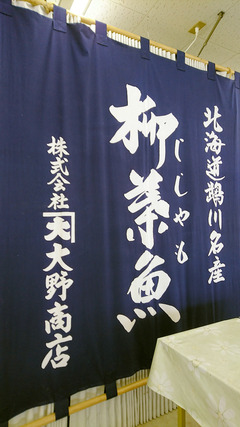 北海道鵡川名産
柳葉魚
ししゃも
株式会社 大 大野商店